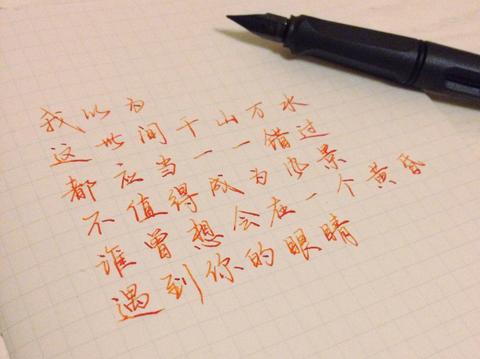 我以为
这世间千山万水
都应当一一错过
不值得成为风景
谁曾想会在一个黄昏
遇到你的眼睛